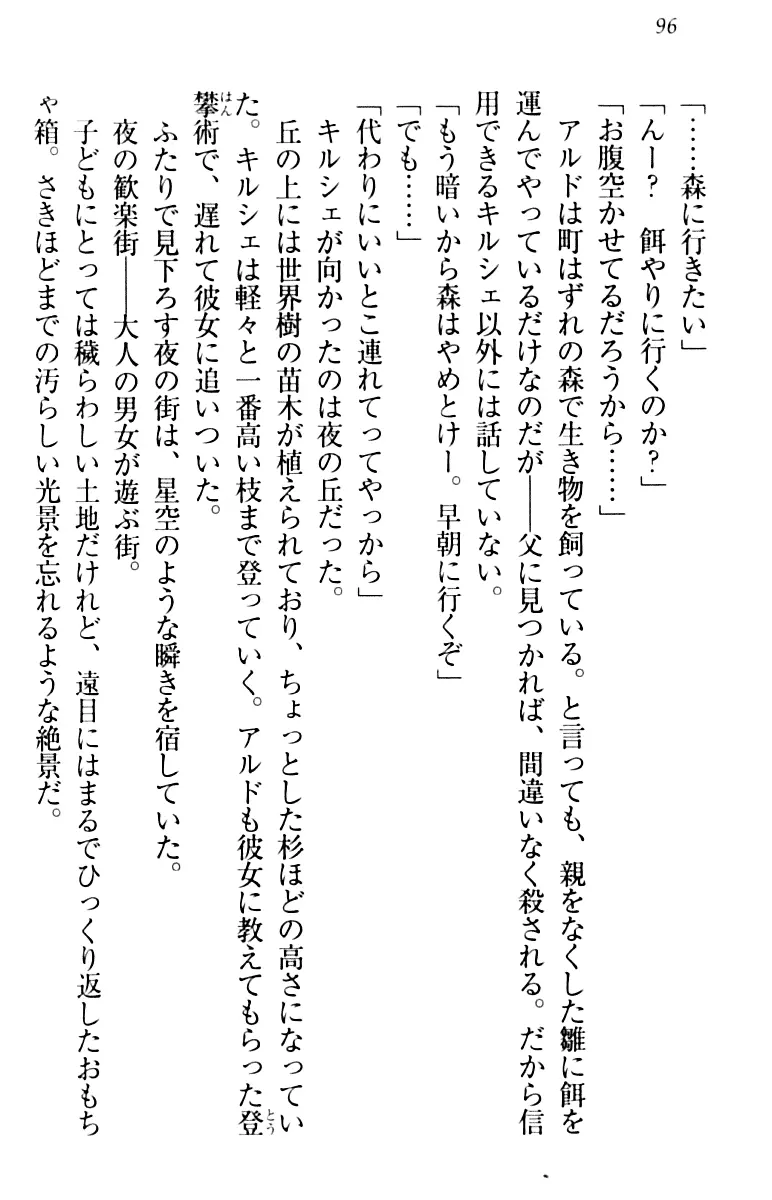 96
「……森に行きたい」
「んー？　餌やりに行くのか？」
「お腹空かせてるだろうから……」
　アルドは町はずれの森で生き物を飼っている。と言っても、親をなくした雛に餌を
運んでやっているだけなのだが――父に見つかれば、間違いなく殺される。だから信
用できるキルシェ以外には話していない。
「もう暗いから森はやめとけー。早朝に行くぞ」
「でも……」
「代わりにいいとこ連れてってやっから」
　キルシェが向かったのは夜の丘だった。
　丘の上には世界樹の苗木が植えられており、ちょっとした杉ほどの高さになってい
た。キルシェは軽々と一番高い枝まで登っていく。アルドも彼女に教えてもらった登とう
攀はん術で、遅れて彼女に追いついた。
　ふたりで見下ろす夜の街は、星空のような瞬きを宿していた。
　夜の歓楽街――大人の男女が遊ぶ街。
　子どもにとっては穢らわしい土地だけれど、遠目にはまるでひっくり返したおもち
ゃ箱。さきほどまでの汚らしい光景を忘れるような絶景だ。